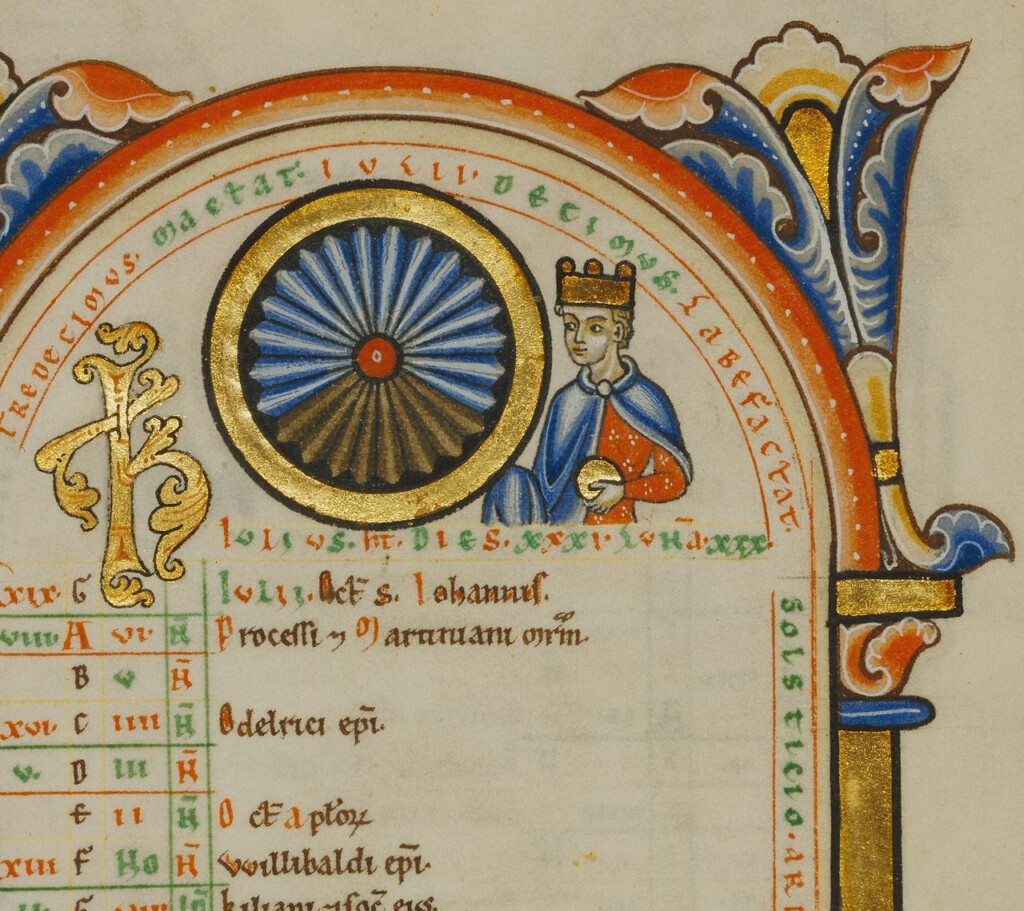 TREDECIMUS. MACTAT. IULII. DECIMUS. LABEFACTAT.
KL
IULIUS. ht̄. DIES. xxxi. LUNĀ. xxx.
xix. G IULII. Oct̄ s. Iohannis.
viii A vi N̄ Processi ⁊ Martiniani mr̄m.
B v N̄
xvi C iiii N̄ Odelrici ep̄i.
v. D iii N̄
E ii N̄ Oct̄ ap̄loꝝ
xiii F No N̄ Willibaldi ep̄i.
G Kiliani ⁊ soc̄ eius.
SOLSTICIO. ARI